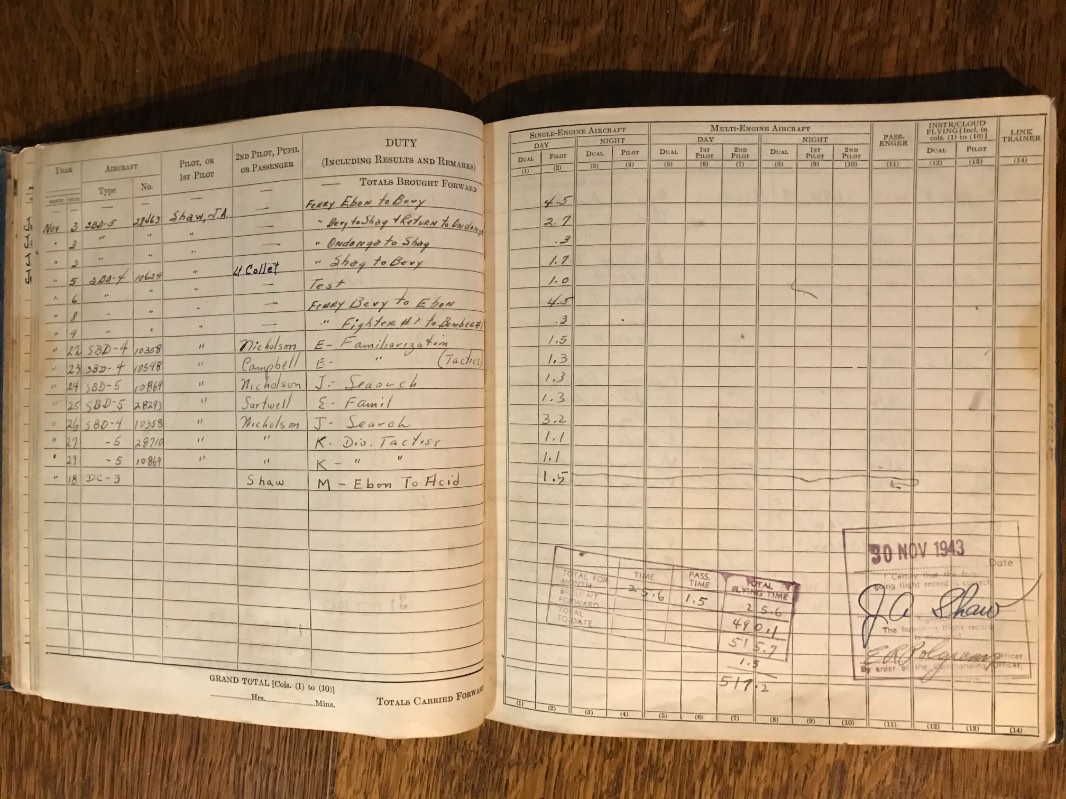 YEAR AIRCRAFT PILOT, OR 1ST PILOT 2ND PILOT, PUPIL OR PASSENGER DUTY (INCLUDING RESULTS AND REMARKS)
MONTH DATE Type No.
— — — — — TOTALS BROUGHT FORWARD
Nov 3 SBD-5 28463 Shaw, J.A. — Ferry Ebon to Bevy
" 3 " " " — " Bevy to Shag & Return to Ondonga
" 3 " " " — " Ondonga to Shag
" 5 SBD-4 10629 " Collet " Shag to Bevy
" 6 " " " — Test
" 8 " " " — Ferry Bevy to Ebon
" 9 " " " — " Fighter #1 to Bomber #1
" 22 SBD-4 10358 " Nicholson E- Familiarization
" 23 SBD-4 10548 " Campbell E- " (Tactics)
" 24 SBD-5 10869 " Nicholson J- Search
" 25 SBD-5 28293 " Surtwell E- Famil
" 26 SBD-4 10358 " Nicholson J- Search
" 27 -5 28710 " " K- Div. Tactics
" 29 -5 10869 " " K- " "
" 18 DC-3 Shaw M- Ebon To Acid
GRAND TOTAL [Cols. (1) to (10)]
Hrs. Mins.
TOTALS CARRIED FORWARD
SINGLE-ENGINE AIRCRAFT MULTI-ENGINE AIRCRAFT PASSENGER INSTR/CLOUD FLYING [Incl. in cols. (1) to (10)] LINK TRAINER
DAY NIGHT DAY NIGHT
DUAL PILOT DUAL PILOT DUAL 1ST PILOT 2ND PILOT DUAL 1ST PILOT 2ND PILOT DUAL PILOT
(1) (2) (3) (4) (5) (6) (7) (8) (9) (10) (11) (12) (13) (14)
4.5
2.7
.3
1.7
1.0
4.5
.3
1.5
1.3
1.3
1.3
3.2
1.1
1.1
1.5
TIME PASS. TIME TOTAL FLYING TIME
TOTAL FOR MONTH 25.6 1.5 25.6
BROUGHT FORWARD 490.1
TOTAL TO DATE 515.7
1.5
517.2
30 NOV 1943
Date
I Certify that the foregoing flight record is correct
J A Shaw
The foregoing flight record
By order of the Commanding Officer,
(1) (2) (3) (4) (5) (6) (7) (8) (9) (10) (11) (12) (13) (14)